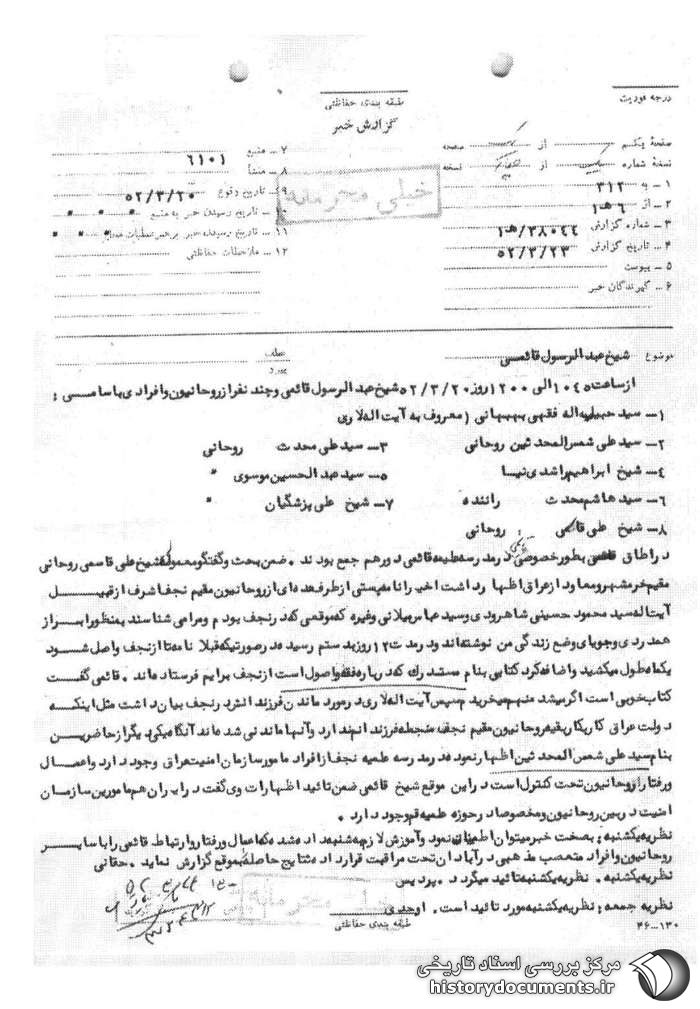 درجه فوریت
طبقه بندی حفاظتی
گزارش خبر
صفحه یکم از صفحه
نسخه شماره از نسخه
۱ ـ به ۳۱۲
۲ ـ از ۶ هـ ۱
۳ ـ شماره گزارش ۳۸۰۴۴/هـ۱
۴ ـ تاریخ گزارش ۵۲/۳/۲۳
۵ ـ پیوست
۶ ـ گیرندگان خبر
۷ ـ منبع ۶۱۰۱
۸ ـ منشأ
۹ ـ تاریخ وقوع ۵۲/۳/۲۰
۱۰ ـ تاریخ رسیدن خبر به منبع
۱۱ ـ تاریخ رسیدن خبر به رهبر عملیات
۱۲ ـ ملاحظات حفاظتی
خیلی محرمانه
موضوع شیخ عبدالرسول قائمی
عطف
از ساعت ۱۰۴۵ الی ۱۲۰۰ روز ۵۲/۳/۲۰ شیخ عبدالرسول قائمی و چند نفر از روحانیون و افرادی با سامی :
۱ـ سید حبیب اله فقهی بهبهانی ( معروف به آیت اله لاری
۲ـ سید علی شمس المحدثین روحانی ۳ـ سید علی محدث روحانی
۴ـ شیخ ابراهیم راشدی نیسا ۵ـ سید عبدالحسین موسوی "
۶ـ سید هاشم محدث راننده ۷ـ شیخ علی پزشگیان "
۸ـ شیخ علی قاسمی : روحانی
در اطاق خصوصی در مدرسه علمیه قائمی دور هم جمع بودند . ضمن بحث و گفتگو معموله شیخ علی قاسمی روحانی
مقیم خرمشهر و معاود از عراق اظهار داشت اخیرا نامه پستی از طرف عده ای از روحانیون مقیم نجف اشرف از قبیل
آیت اله سید محمود حسینی شاهرودی و سید عباس میلانی و غیره که موقعی که در نجف بودم و مرا می شناسند بمنظور ابراز
همدردی و جویای وضع زندگی من نوشته اند و در مدت ۱۲ روز بدستم رسیده در صورتیکه قبلا نامه تا از نجف واصل شود
یکماه طول میکشید و اضافه کرد کتابی بنام مستدرک که درباره فقه و اصول است از نجف برایم فرستاده اند . قائمی گفت
کتاب خوبی است اگر میشد منهم میخریدم سپس آیت اله لاری در مورد ماندن فرزندانش در نجف بیان داشت مثل اینکه
دولت عراق کاری کار بقیه روحانیون مقیم نجف منجمله فرزندانم ندارد و آنها مانده نی شده اند آنگاه یکی دیگر از حاضرین
بنام سید علی شمس المحدثین اظهار نمود در مدرسه علمیه نجف از افراد مامور سازمان امنیت عراق وجود دارد و اعمال
و رفتار روحانیون تحت کنترل است در این موقع شیخ قائمی ضمن تائید اظهارات وی گفت در ایران هم مامورین سازمان
امنیت در بین روحانیون و مخصوصا در حوزه علمیه قم وجود دارد .
نظریه یکشنبه : بصحت خبر میتوان اطمینان نمود و آموزش لازم به شنبه داده شده که اعمال و رفتار و ارتباط قائمی را با سایر
روحانیون و افراد متعصب مذهبی در آبادان تحت مراقبت قرار داده نتایج حاصله بموقع گزارش نماید . حقانی
نظریه یکشنبه . نظریه یکشنبه تائید میگردد . پردیس
نظریه جمعه : نظریه یکشنبه مورد تائید است . اوحدی
خیلی محرمانه
طبقه بندی حفاظتی
۴۶-۱۳۰
مرکز بررسی اسناد تاریخی
historydocuments.ir